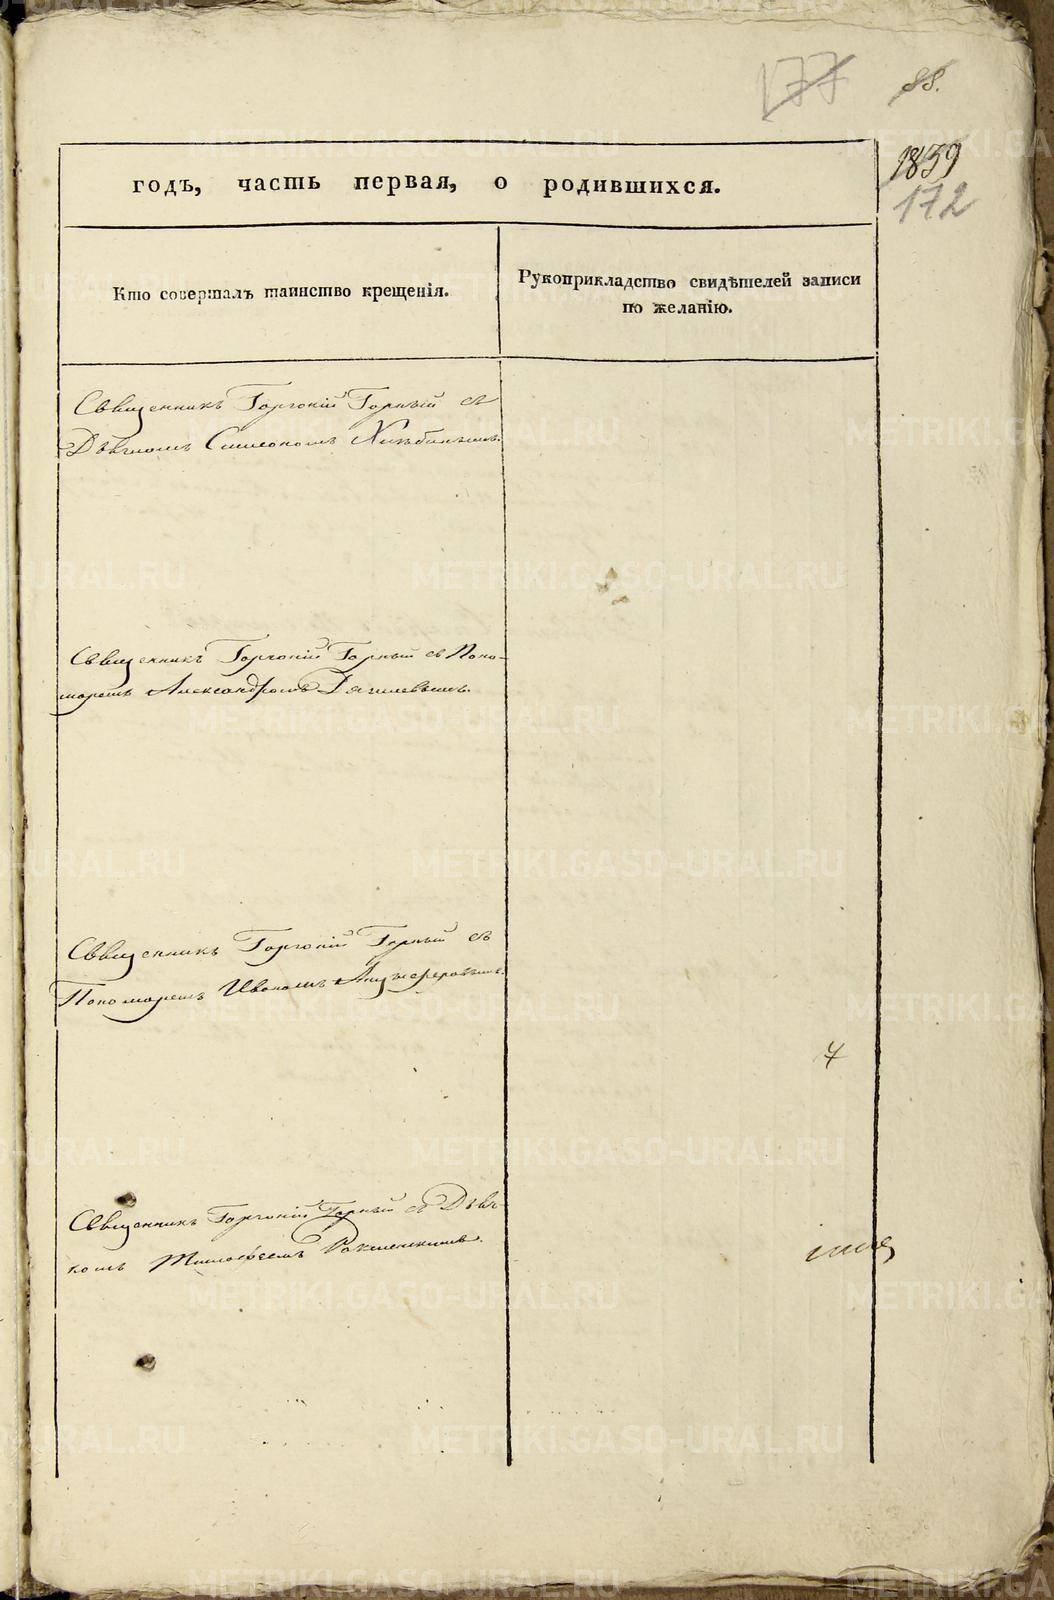 177
88.
1839
172
годъ, часть первая, о родившихся.
Кто совершалъ таинство крещенія.
Рукоприкладство свидѣтелей записи
по желанію.
Священникъ Горгоній Горный съ
Дьячкомъ Симеономъ
Священникъ Горгоній Горный съ Поно-
маремъ Александромъ Дягилевымъ.
Священникъ Горгоній Горный съ
Пономаремъ Иваномъ Анцыферовымъ.
7
Священникъ Горгоній Горный съ Дьяч-
комъ Тимофеемъ
METRIKI.GASO-URAL.RU